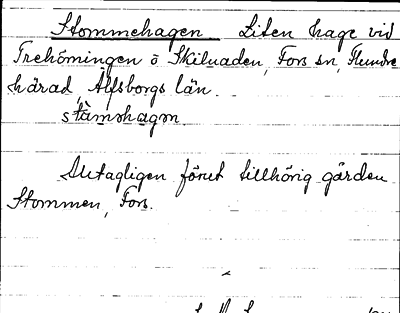 Stommehagen Liten hage vid
Trehörningen ö Skiluaden, Fors sn, Flundre
härad Älfsborgs län.
stå̀mǝhagǝn
Antagligen förut tillhörig gården
Stommen, Fors.